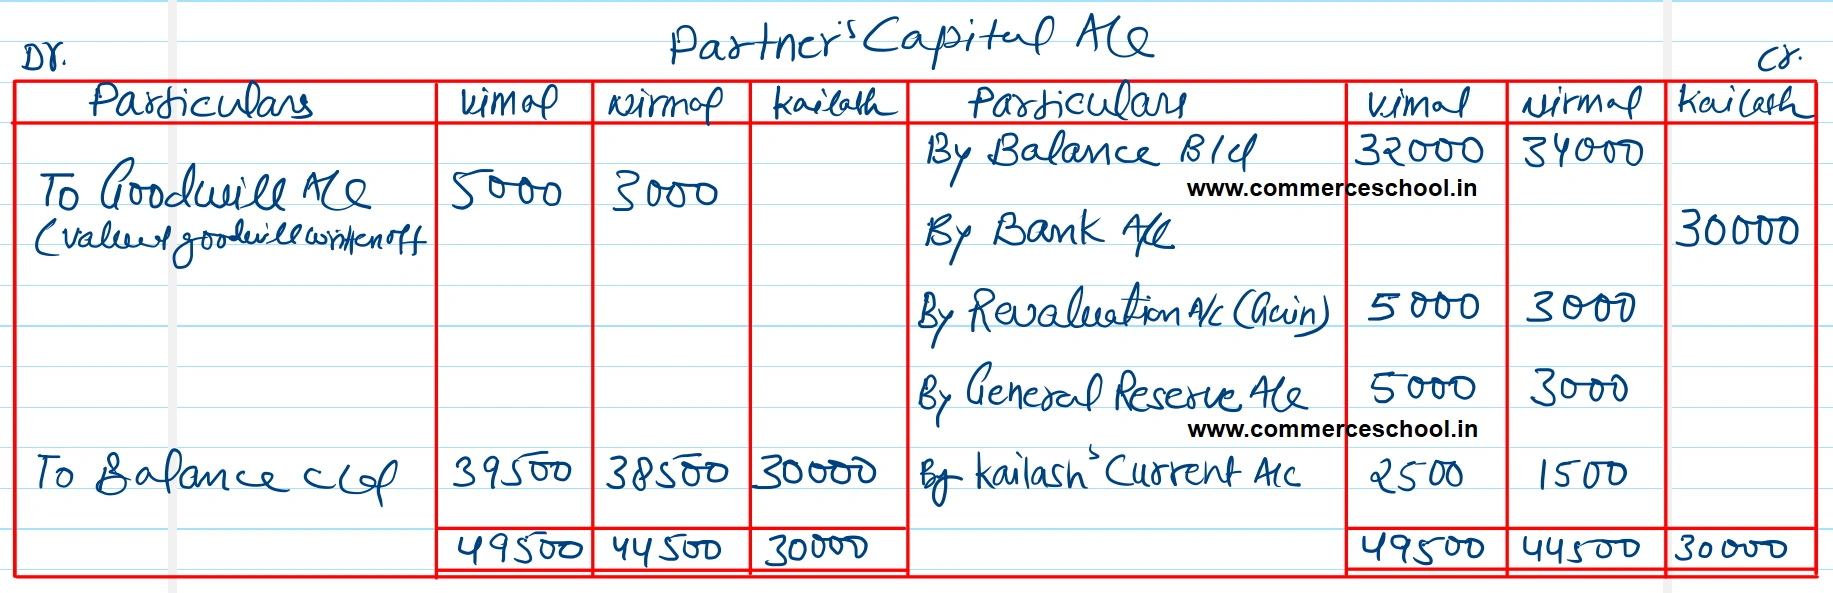 Partner's Capital A/c
Dr. Cr.
Particulars Vimal Nirmal Kailash Particulars Vimal Nirmal Kailash
By Balance B/d 32000 34000
To Goodwill A/c 5000 3000 www.commerceschool.in
(value of goodwill written off By Bank A/c 30000
By Revaluation A/c (Gain) 5000 3000
By General Reserve A/c 5000 3000
www.commerceschool.in
To Balance c/d 39500 38500 30000 By Kailash's Current A/c 2500 1500
49500 44500 30000 49500 44500 30000